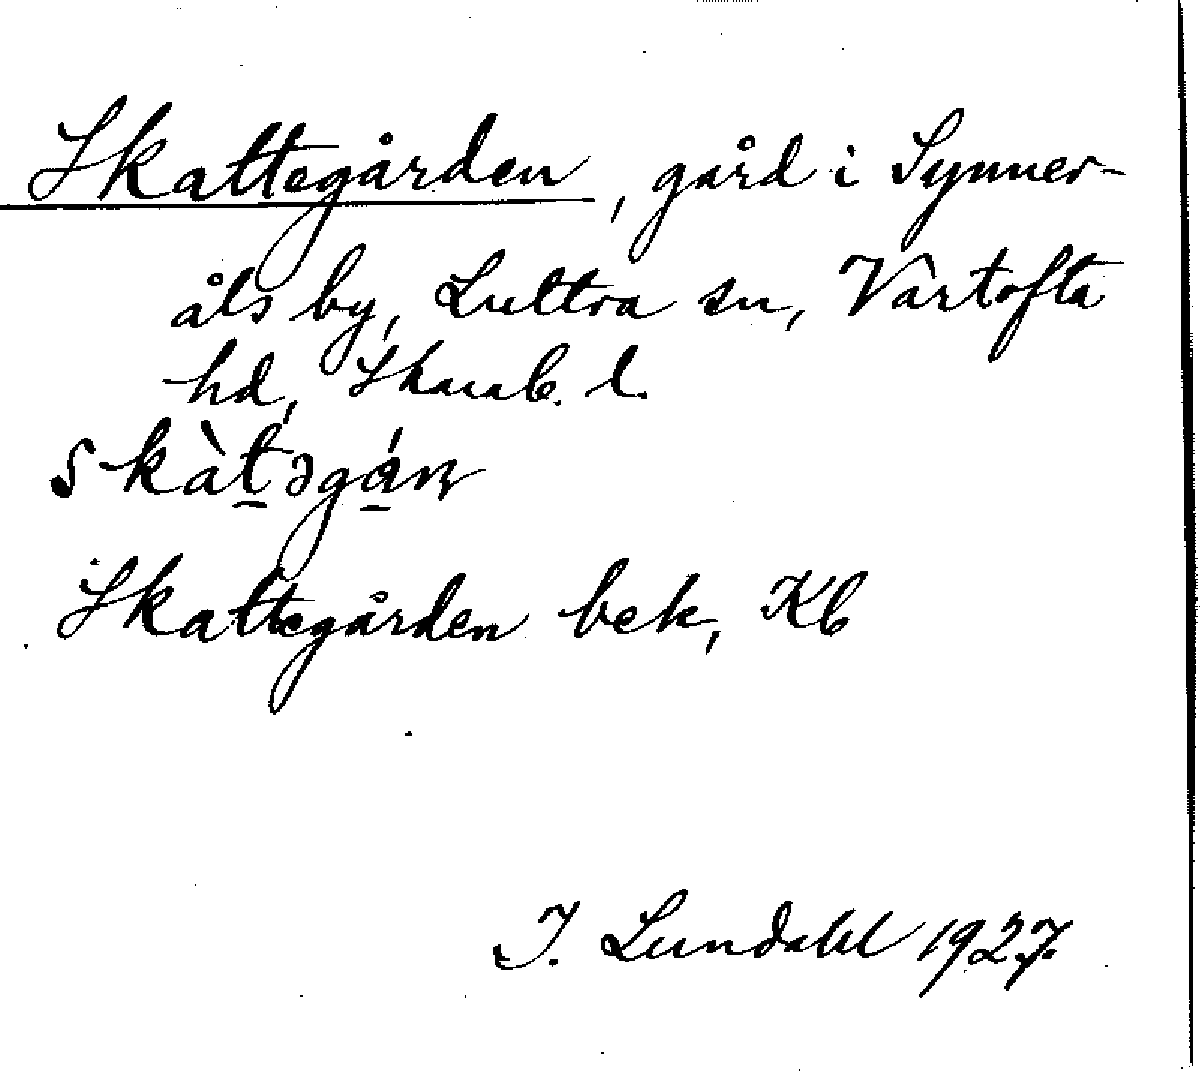 Skattegården, gård i Synner-
åls by, Luttra sn, Vartofta
hd, Skarab. l.
skàt̲əgá̲ɳ
Skattegården bek, Kb
I. Lundahl 1927.